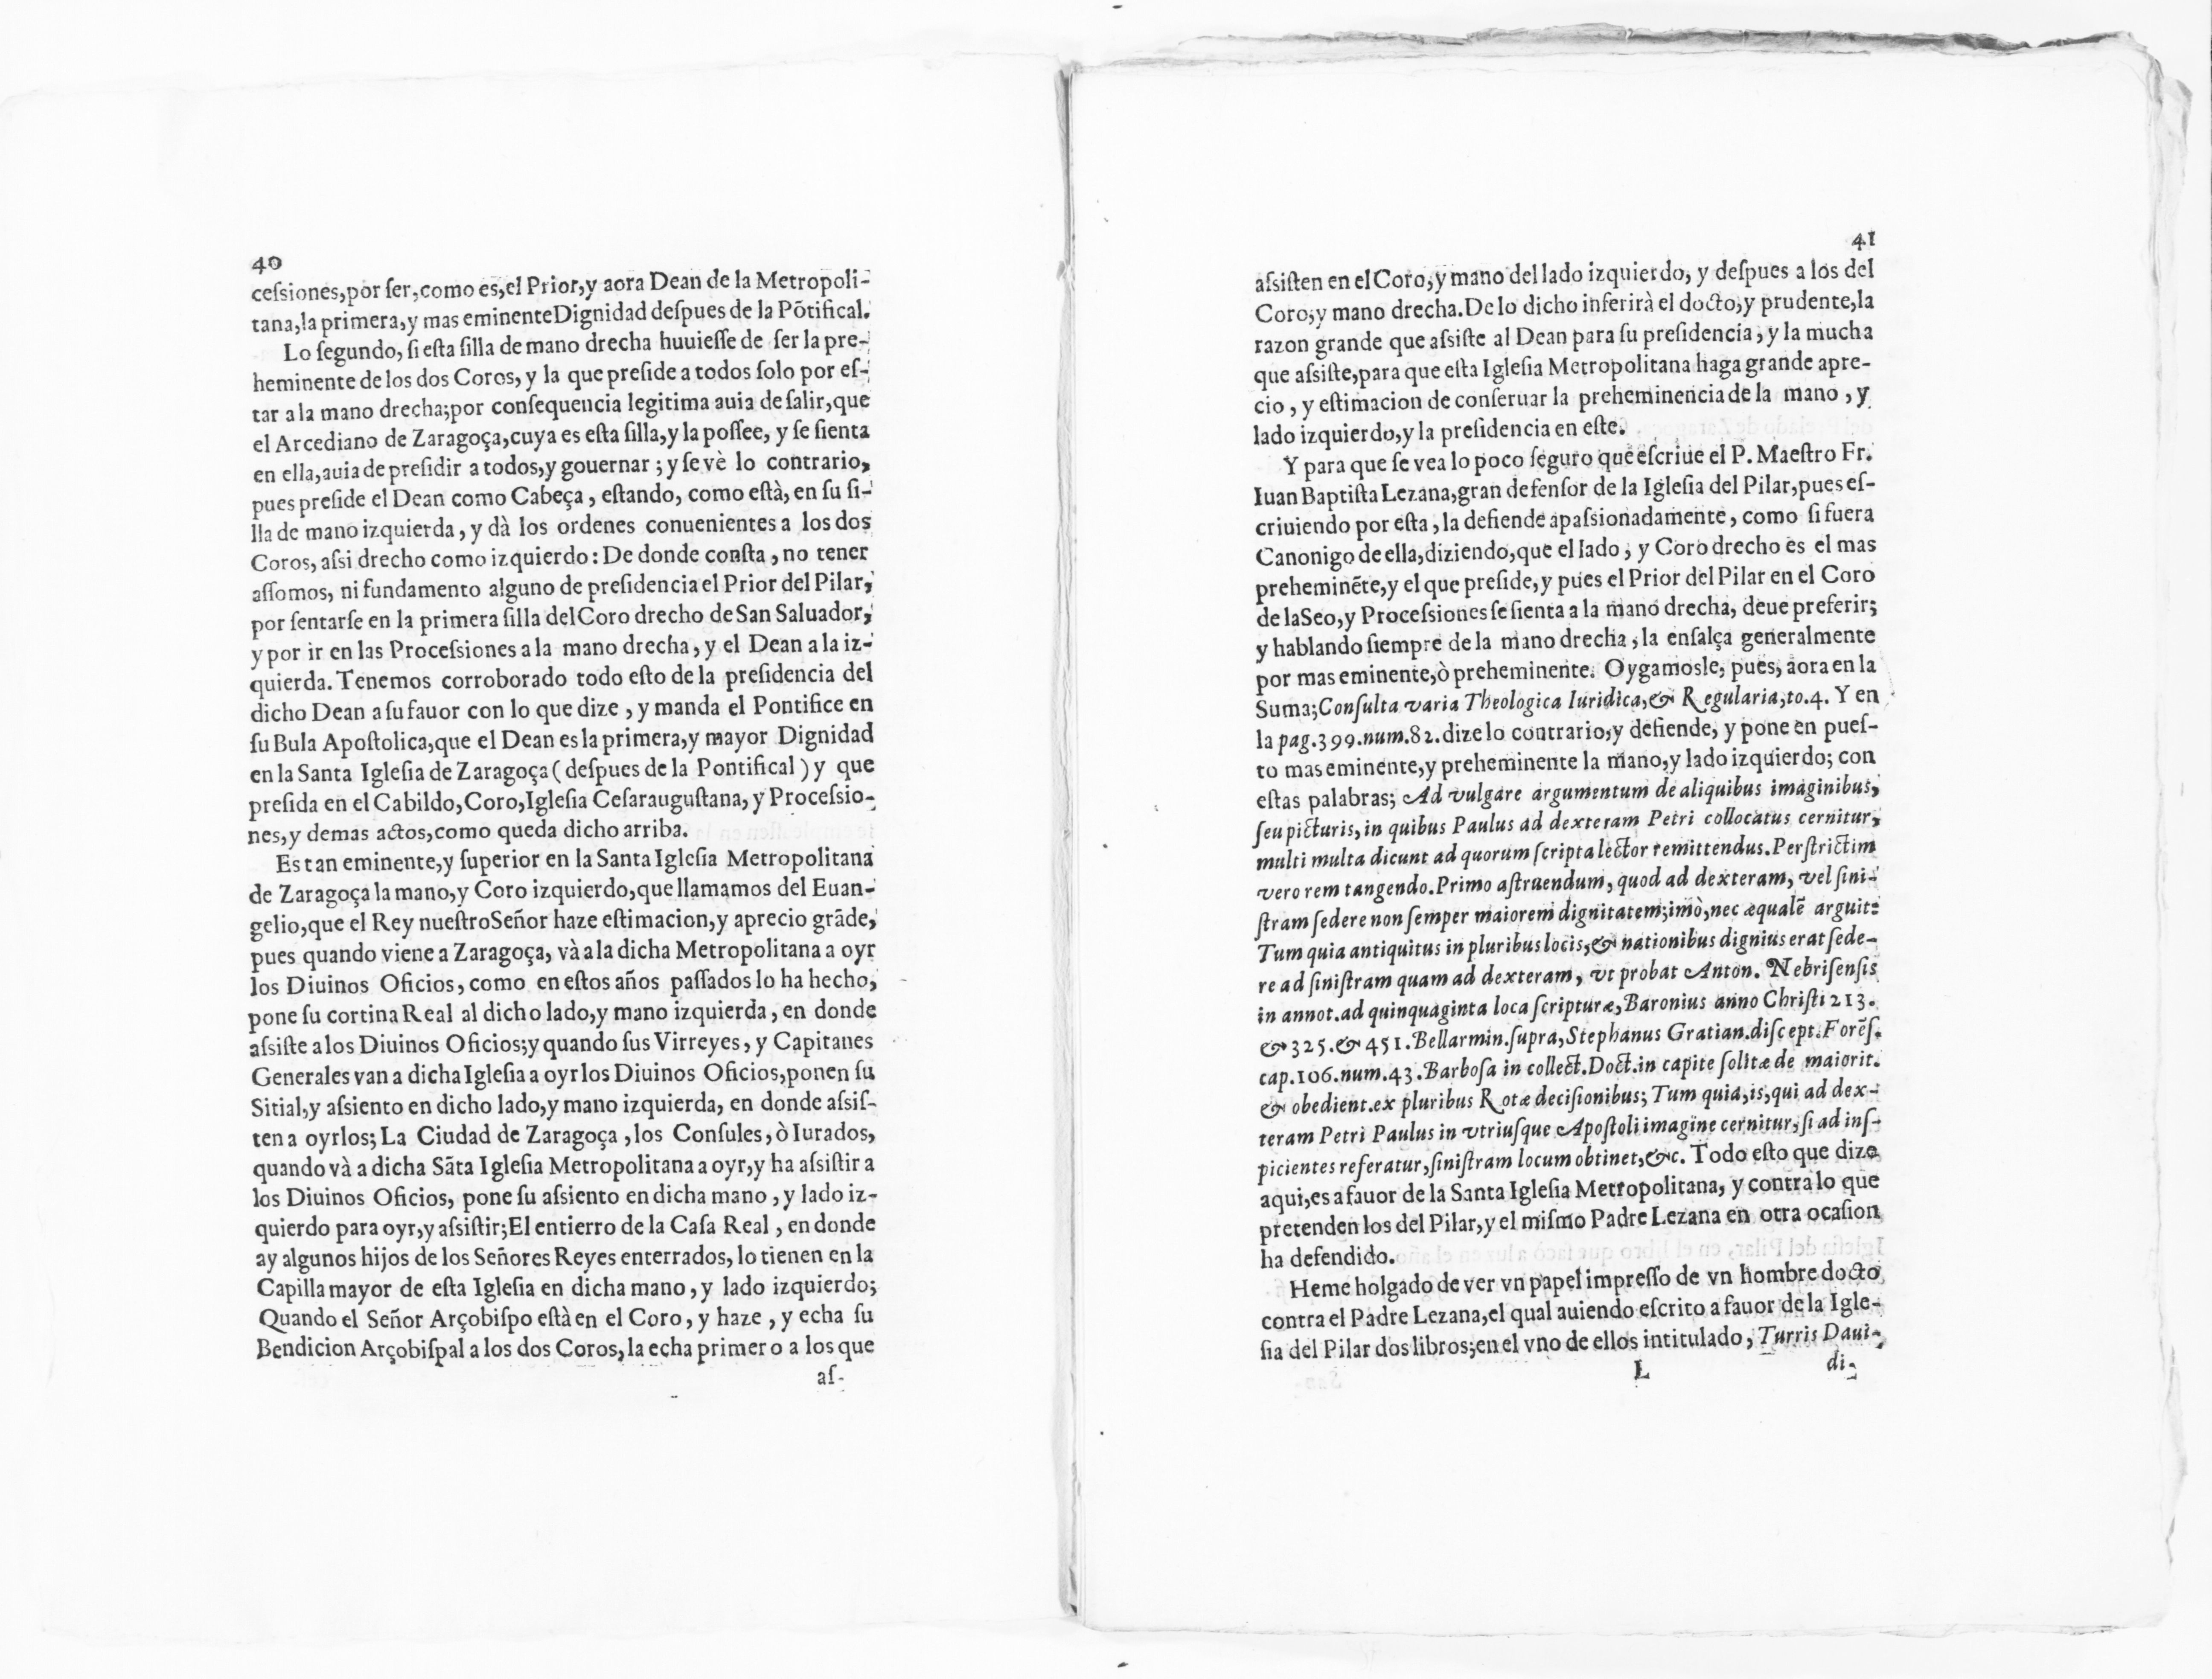 40
ceſsiones,por ſer,como es,el Prior,y aora Dean de la Metropoli-
tana,la primera,y mas eminente Dignidad deſpues de la Põtifical.
Lo ſegundo, ſi eſta ſilla de mano drecha huuieſſe de ſer la pre-
heminente de los dos Coros, y la que preſide a todos ſolo por eſ-
tar a la mano drecha;por conſequencia legitima auia de ſalir,que
el Arcediano de Zaragoça,cuya es eſta ſilla,y la poſſee, y ſe ſienta
en ella,auia de preſidir a todos,y gouernar ; y ſe vè lo contrario,
pues preſide el Dean como Cabeça , eſtando, como eſtà, en ſu ſi-
lla de mano izquierda , y dà los ordenes conuenientes a los dos
Coros, aſsi drecho como izquierdo : De donde conſta , no tener
aſſomos, ni fundamento alguno de preſidencia el Prior del Pilar,
por ſentarſe en la primera ſilla del Coro drecho de San Saluador,
y por ir en las Proceſsiones a la mano drecha, y el Dean a la iz-
quierda. Tenemos corroborado todo eſto de la preſidencia del
dicho Dean a ſu fauor con lo que dize , y manda el Pontifice en
ſu Bula Apoſtolica,que el Dean es la primera,y mayor Dignidad
en la Santa Igleſia de Zaragoça ( deſpues de la Pontifical ) y que
preſida en el Cabildo,Coro,Igleſia Ceſarauguſtana, y Proceſsio-
nes,y demas actos,como queda dicho arriba.
Es tan eminente,y ſuperior en la Santa Igleſia Metropolitana
de Zaragoça la mano,y Coro izquierdo,que llamamos del Euan-
gelio,que el Rey nueſtro Señor haze eſtimacion,y aprecio grãde,
pues quando viene a Zaragoça, và a la dicha Metropolitana a oyr
los Diuinos Oficios, como en eſtos años paſſados lo ha hecho,
pone ſu cortina Real al dicho lado,y mano izquierda , en donde
aſsiſte a los Diuinos Oficios;y quando ſus Virreyes , y Capitanes
Generales van a dicha Igleſia a oyr los Diuinos Oficios,ponen ſu
Sitial,y aſsiento en dicho lado,y mano izquierda, en donde aſsiſ-
ten a oyrlos; La Ciudad de Zaragoça , los Conſules, ò Iurados,
quando và a dicha Sãta Igleſia Metropolitana a oyr,y ha aſsiſtir a
los Diuinos Oficios, pone ſu aſsiento en dicha mano , y lado iz-
quierdo para oyr,y aſsiſtir;El entierro de la Caſa Real , en donde
ay algunos hijos de los Señores Reyes enterrados, lo tienen en la
Capilla mayor de eſta Igleſia en dicha mano , y lado izquierdo;
Quando el Señor Arçobiſpo eſtà en el Coro, y haze , y echa ſu
Bendicion Arçobiſpal a los dos Coros,la echa primero a los que
aſ-
41
aſsiſten en el Coro,y mano del lado izquierdo, y deſpues a los del
Coro,y mano drecha. De lo dicho inferirà el docto,y prudente,la
razon grande que aſsiſte al Dean para ſu preſidencia , y la mucha
que aſsiſte,para que eſta Igleſia Metropolitana haga grande apre-
cio , y eſtimacion de conſeruar la preheminencia de la mano , y
lado izquierdo,y la preſidencia en eſte.
Y para que ſe vea lo poco ſeguro que eſcriue el P. Maeſtro Fr.
Iuan Baptiſta Lezana,gran defenſor de la Igleſia del Pilar,pues eſ-
criuiendo por eſta , la defiende apaſsionadamente , como ſi fuera
Canonigo de ella,diziendo,que el lado , y Coro drecho es el mas
preheminẽte,y el que preſide,y pues el Prior del Pilar en el Coro
de la Seo,y Proceſsiones ſe ſienta a la mano drecha, deue preferir;
y hablando ſiempre de la mano drecha , la enſalça generalmente
por mas eminente,ò preheminente. Oygamosle, pues, aora en la
Suma;Conſulta varia Theologica Iuridica,& Regularia,to.4. Y en
la pag.399.num.82.dize lo contrario,y defiende, y pone en pueſ-
to mas eminente,y preheminente la mano,y lado izquierdo; con
eſtas palabras; Ad vulgare argumentum de aliquibus imaginibus,
ſeu picturis,in quibus Paulus ad dexteram Petri collocatus cernitur,
multi multa dicunt ad quorum ſcripta lector remittendus. Perſtrictim
vero rem tangendo. Primo aſtruendum, quod ad dexteram, vel ſini-
ſtram ſedere non ſemper maiorem dignitatem;imò,nec æqualẽ arguit:
Tum quia antiquitus in pluribus locis,& nationibus dignius erat ſede-
re ad ſiniſtram quam ad dexteram, vt probat Anton. Nebriſenſis
in annot.ad quinquaginta loca ſcripturæ, Baronius anno Chriſti 213.
& 325.& 451. Bellarmin.ſupra, Stephanus Gratian.diſcept.Forẽſ.
cap.106.num.43. Barboſa in collect.Doct.in capite ſolitæ de maiorit.
& obedient.ex pluribus Rotæ deciſionibus; Tum quia,is,qui ad dex-
teram Petri Paulus in vtriuſque Apoſtoli imagine cernitur, ſi ad inſ-
picientes referatur, ſiniſtram locum obtinet,&c. Todo eſto que dize
aqui,es a fauor de la Santa Igleſia Metropolitana, y contra lo que
pretenden los del Pilar,y el miſmo Padre Lezana en otra ocaſion
ha defendido.
Heme holgado de ver vn papel impreſſo de vn hombre docto
contra el Padre Lezana,el qual auiendo eſcrito a fauor de la Igle-
ſia del Pilar dos libros;en el vno de ellos intitulado , Turris Daui-
L di-